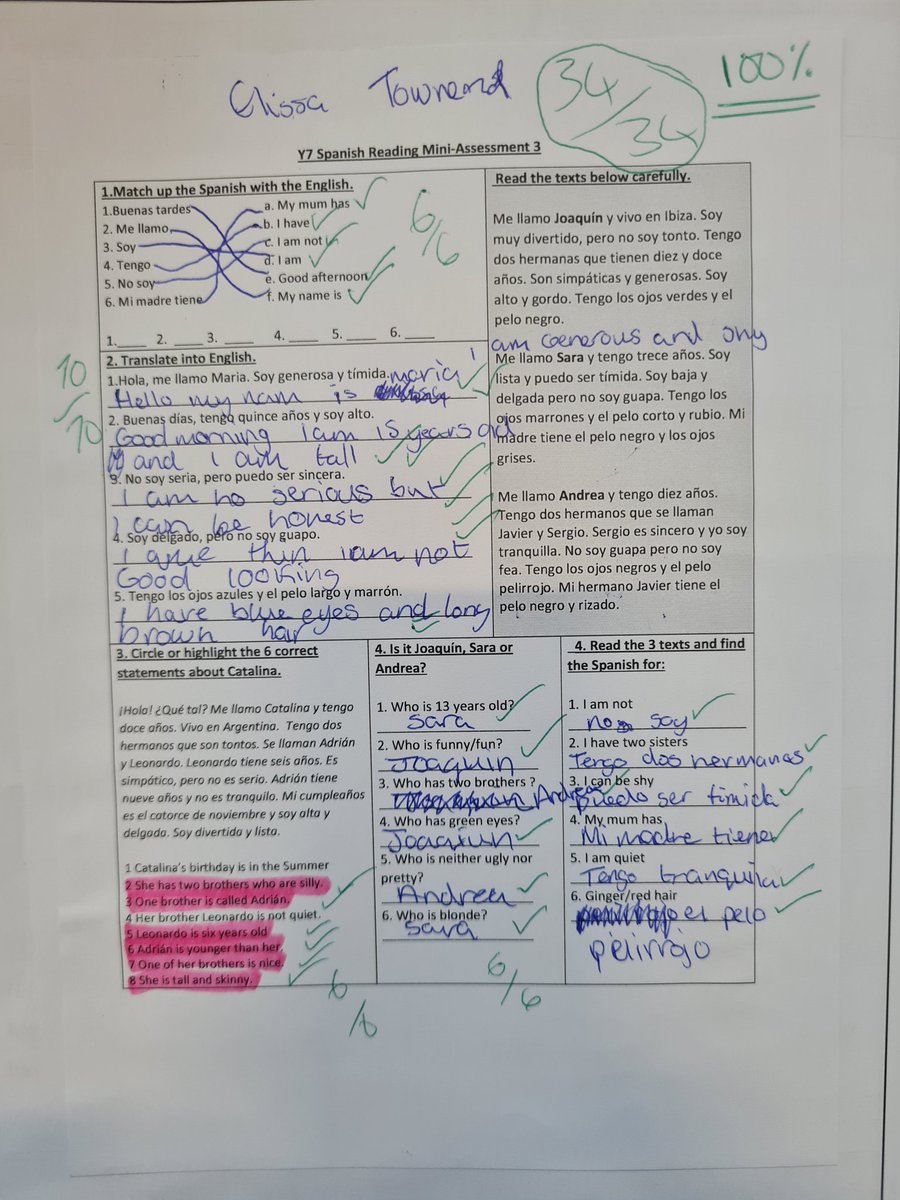 Elissa Townend
34/34
100%
Y7 Spanish Reading Mini-Assessment 3
1.Match up the Spanish with the English.
1.Buenas tardes
2. Me llamo
3. Soy
4. Tengo
5. No soy
6. Mi madre tiene
a. My mum has
b. I have
c. I am not
d. I am
e. Good afternoon
f. My name is
6/6
1.____ 2. ____ 3. ____ 4. ____ 5. ____ 6. ____
2. Translate into English.
10/10
1.Hola, me llamo Maria. Soy generosa y tímida.
Hello my nam is maria I
am Generous and shy
2. Buenas días, tengo quince años y soy alto.
Good morning I am 15 years old
and I am tall
3. No soy seria, pero puedo ser sincera.
I am no serious but
I can be honest
4. Soy delgado, pero no soy guapo.
thin I am not
Good looking
5. Tengo los ojos azules y el pelo largo y marrón.
I have blue eyes and long
brown hair
Read the texts below carefully.
Me llamo Joaquín y vivo en Ibiza. Soy
muy divertido, pero no soy tonto. Tengo
dos hermanas que tienen diez y doce
años. Son simpáticas y generosas. Soy
alto y gordo. Tengo los ojos verdes y el
pelo negro.
Me llamo Sara y tengo trece años. Soy
lista y puedo ser tímida. Soy baja y
delgada pero no soy guapa. Tengo los
ojos marrones y el pelo corto y rubio. Mi
madre tiene el pelo negro y los ojos
grises.
Me llamo Andrea y tengo diez años.
Tengo dos hermanos que se llaman
Javier y Sergio. Sergio es sincero y yo soy
tranquilla. No soy guapa pero no soy
fea. Tengo los ojos negros y el pelo
pelirrojo. Mi hermano Javier tiene el
pelo negro y rizado.
3. Circle or highlight the 6 correct
statements about Catalina.
¡Hola! ¿Qué tal? Me llamo Catalina y tengo
doce años. Vivo en Argentina. Tengo dos
hermanos que son tontos. Se llaman Adrián
y Leonardo. Leonardo tiene seis años. Es
simpático, pero no es serio. Adrián tiene
nueve años y no es tranquilo. Mi cumpleaños
es el catorce de noviembre y soy alta y
delgada. Soy divertida y lista.
1 Catalina's birthday is in the Summer
2 She has two brothers who are silly.
3 One brother is called Adrián.
4 Her brother Leonardo is not quiet.
5 Leonardo is six years old
6 Adrián is younger than her.
7 One of her brothers is nice.
8 She is tall and skinny.
6/6
4. Is it Joaquín, Sara or
Andrea?
1. Who is 13 years old?
Sara
2. Who is funny/fun?
Joaquin
3. Who has two brothers ?
Andrea
4. Who has green eyes?
Joaqiun
5. Who is neither ugly nor
pretty?
Andrea
6. Who is blonde?
Sara
6/6
4. Read the 3 texts and find
the Spanish for:
1. I am not
no soy
2. I have two sisters
Tengo dos hermanas
3. I can be shy
Puedo ser timida
4. My mum has
Mi madre tiene
5. I am quiet
Tengo tranquila
6. Ginger/red hair
el pelo
pelirrojo